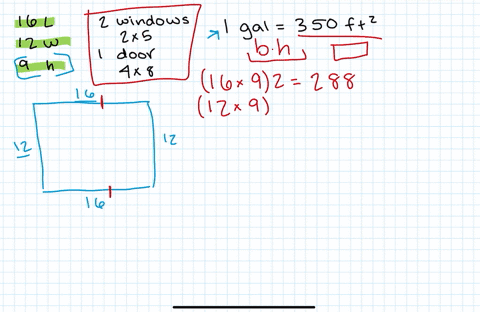 16 L
12 w
9 h
2 windows
2x5
1 door
4x8
1 gal = 350 ft²
b·h
(16 x 9)2 = 288
(12 x 9)
16
12
12
16